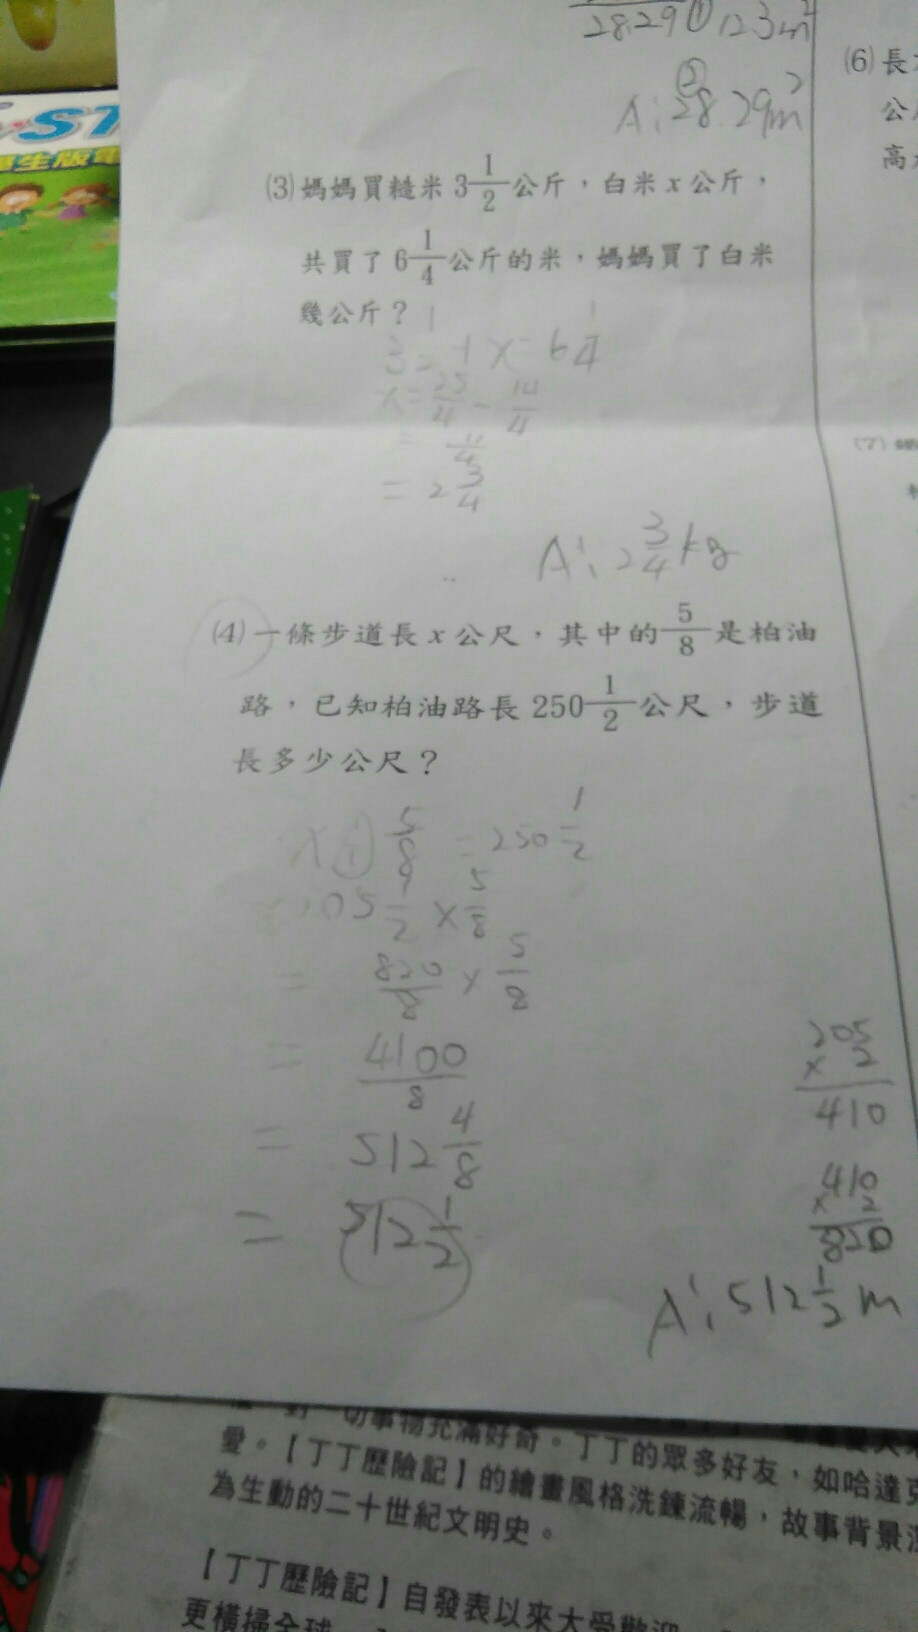 28.29 ① 12.3m²
② A: 28.29m²
(3)媽媽買糙米3 1/2公斤，白米x公斤，
共買了6 1/4公斤的米，媽媽買了白米
幾公斤？
3 1/2 + x = 6 1/4
x = 25/4 - 14/4
= 11/4
= 2 3/4
A: 2 3/4 kg
(4)一條步道長x公尺，其中的5/8是柏油
路，已知柏油路長250 1/2公尺，步道
長多少公尺？
5/8 = 250 1/2
05 1/2 × 5/8
= 820/8 × 5/8
= 4100/8
= 512 4/8
= 512 1/2
205
× 2
410
410
× 2
820
A: 512 1/2 m
(6)長
公
高
(7)
ST
學生版電
一切事物充滿好奇。丁丁的眾多好友，如哈達
愛。【丁丁歷險記】的繪畫風格洗鍊流暢，故事背景
為生動的二十世紀文明史。
【丁丁歷險記】自發表以來大受歡迎
更橫掃全球